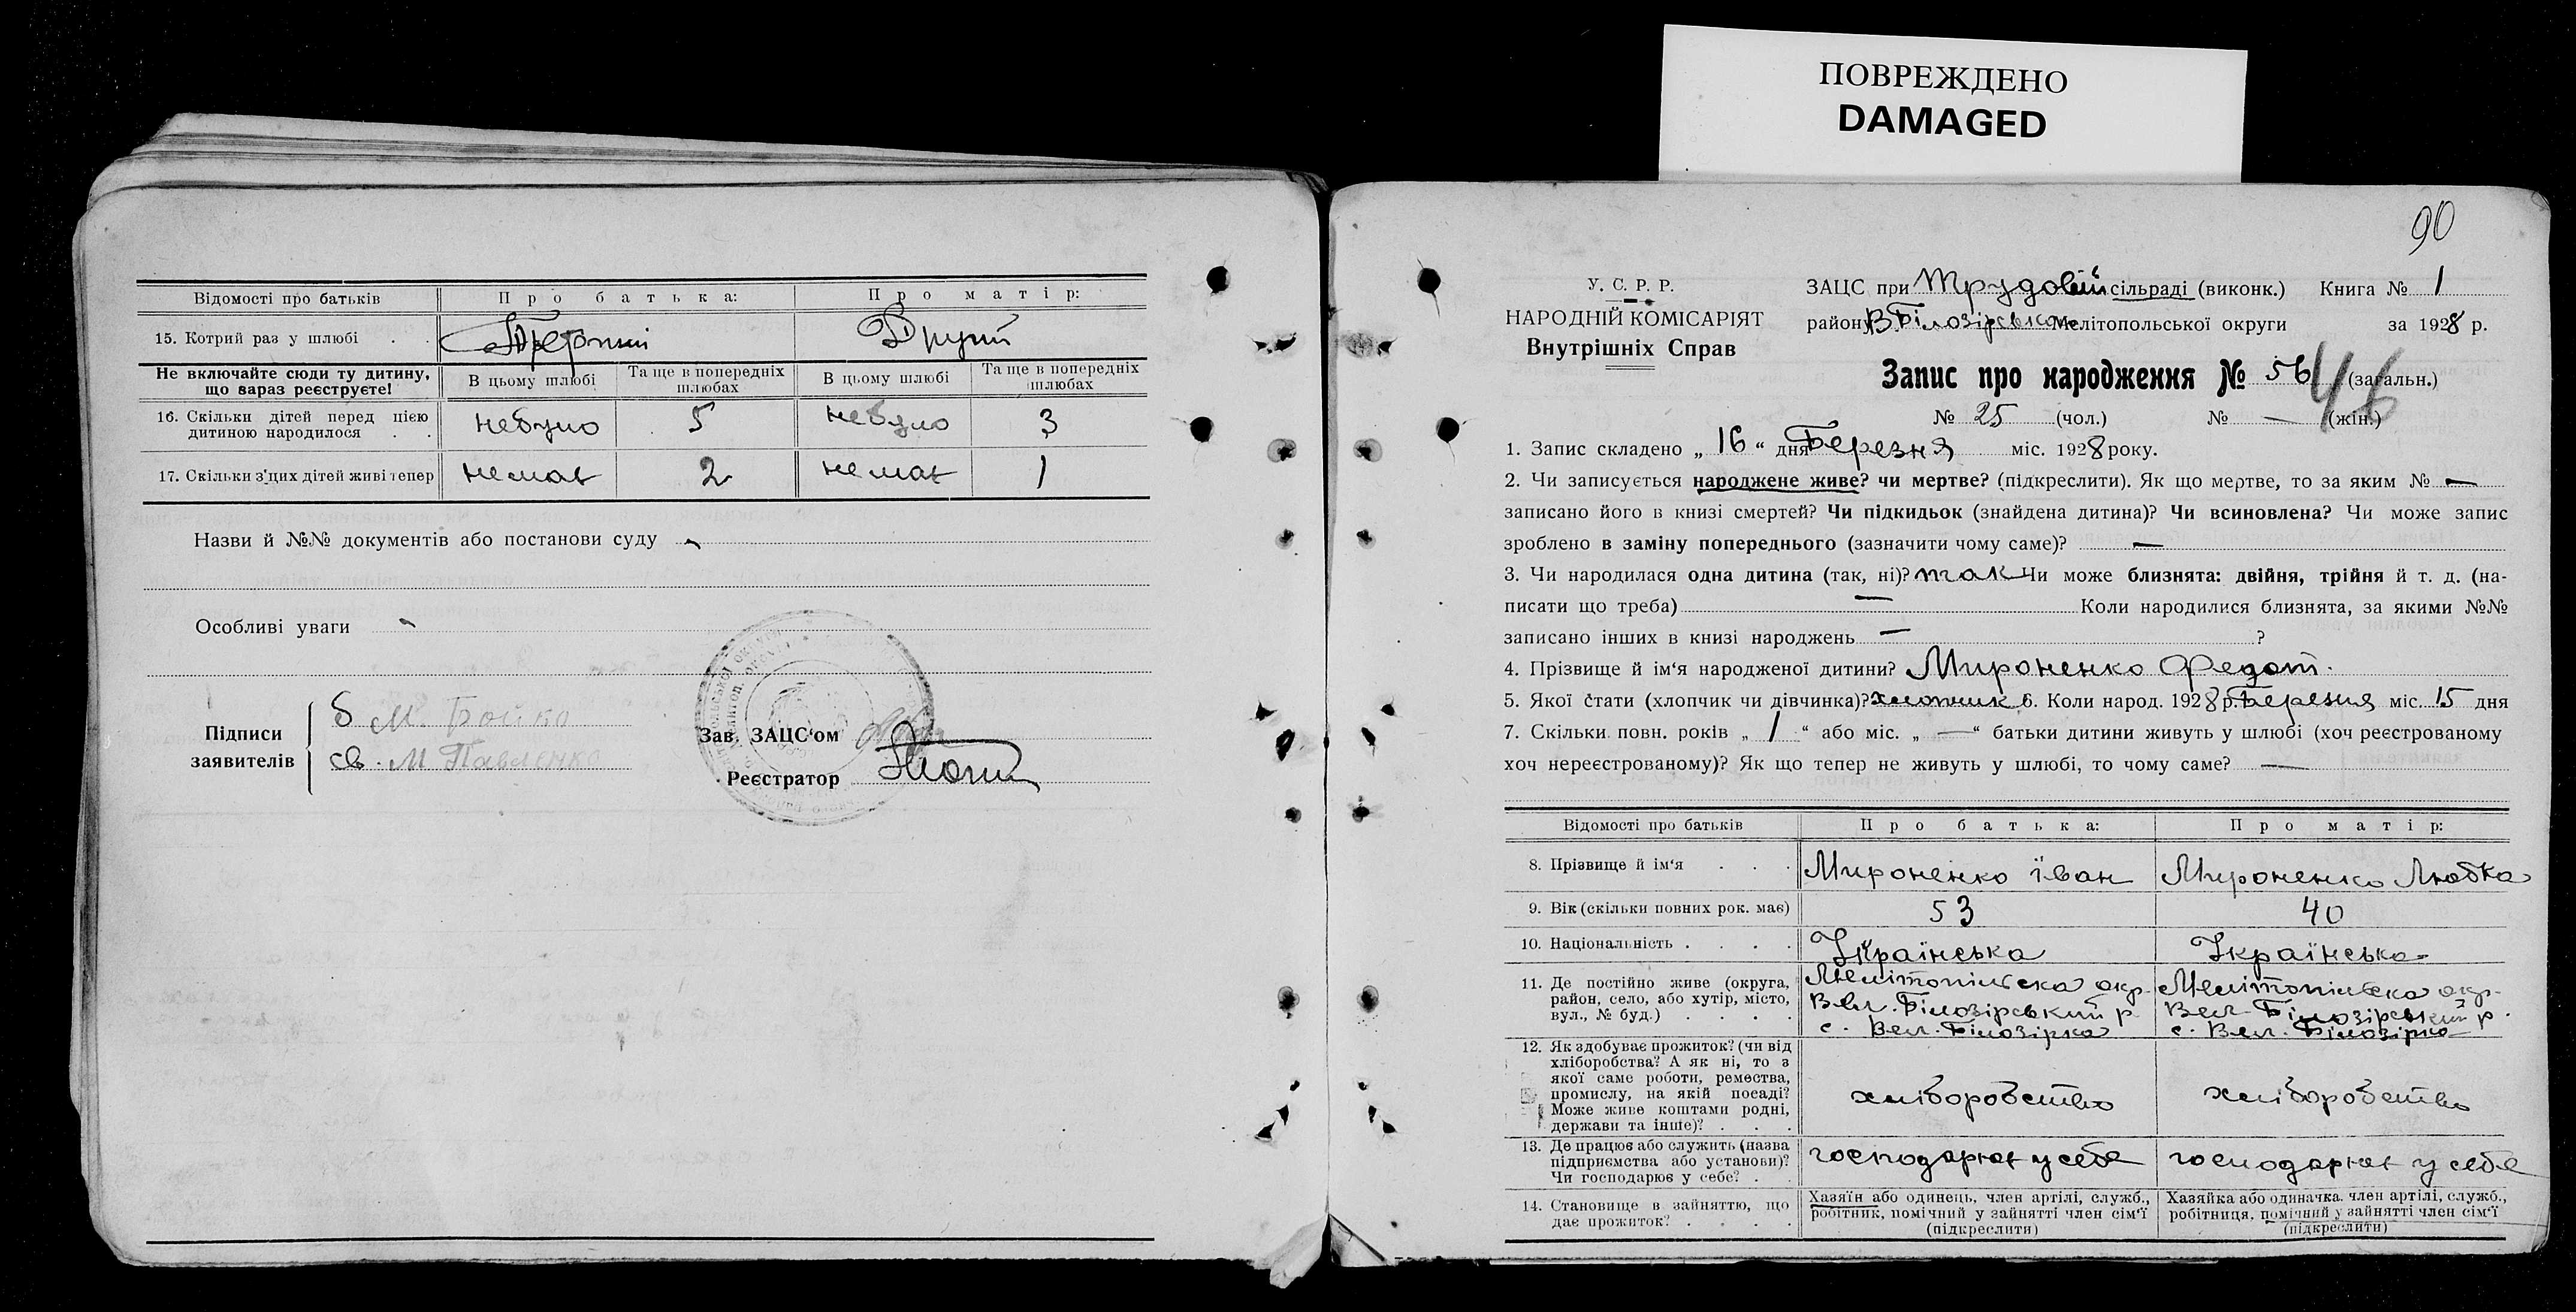 ПОВРЕЖДЕНО
DAMAGED
Відомості про батьків
Про батька:
Про матір:
15. Котрий раз у шлюбі . .
Третий
Другий
Не включайте сюди ту дитину, що вараз реєструєте!
В цьому шлюбі
Та ще в попередніх шлюбах
В цьому шлюбі
Та ще в попередніх шлюбах
16. Скільки дітей перед цією дитиною народилося . .
небуло
5
небуло
3
17. Скільки з'цих дітей живі тепер
немає
2
немає
1
Назви й №№ документів або постанови суду
Особливі уваги
Підписи заявителів
б М. Бойко
св. М Павленко
Зав. ЗАЦС'ом
Реєстратор
90
У. С. Р. Р.
НАРОДНІЙ КОМІСАРІЯТ
Внутрішніх Справ
ЗАЦС при Трудовій сільраді (виконк.) Книга № 1
району В Білозірська Мелітопольської округи за 1928 р.
Запис про народження № 56 (загальн.)
46
№ 25 (чол.) № — (жін.)
1. Запис складено „ 16 “ дня Березня міс. 1928 року.
2. Чи записується народжене живе? чи мертве? (підкреслити). Як що мертве, то за яким № —
записано його в книзі смертей? Чи підкидьок (знайдена дитина)? Чи всиновлена? Чи може запис
зроблено в заміну попереднього (зазначити чому саме)? —
3. Чи народилася одна дитина (так, ні)? так Чи може близнята: двійня, трійня й т. д. (на-
писати що треба) — Коли народилися близнята, за якими №№
записано інших в книзі народжень — ?
4. Прізвище й ім'я народженої дитини? Мироненко Федот.
5. Якої стати (хлопчик чи дівчинка)? хлопчик 6. Коли народ. 1928 р. Березня міс. 15 дня
7. Скільки повн. років „ 1 “ або міс. „ — “ батьки дитини живуть у шлюбі (хоч реєстрованому
хоч нереєстрованому)? Як що тепер не живуть у шлюбі, то чому саме? —
Відомості про батьків
Про батька:
Про матір:
8. Прізвище й ім'я . . .
Мироненко Їван
Мироненко Любка
9. Вік (скільки повних рок. має)
53
40
10. Національність . . . .
Українська
Українська
11. Де постійно живе (округа,
район, село, або хутір, місто,
вул., № буд.) . . . .
Мелітопільска окр.
Вел. Білозірський р
с. Вел. Білозірка
Мелітопільска окр.
Вел. Білозірський р.
с. Вел. Білозірка
12. Як здобуває прожиток? (чи від
хліборобства? А як ні, то з
якої саме роботи, ремества,
промислу, на якій посаді?
Може живе коштами родні,
держави та інше)? . . .
хліборобство
хліборобство
13. Де працює або служить (назва
підприємства або установи)?
Чи господарює у себе? . .
господарює у себе
господарює у себе
14. Становище в зайняттю, що
дає прожиток? . . . .
Хазяїн або одинець, член артілі, служб.,
робітник, помічний у зайнятті член сім'ї
(підкреслити)
Хазяйка або одиначка. член артілі, служб.,
робітниця, помічний у зайнятті член сім'ї
(підкреслити)